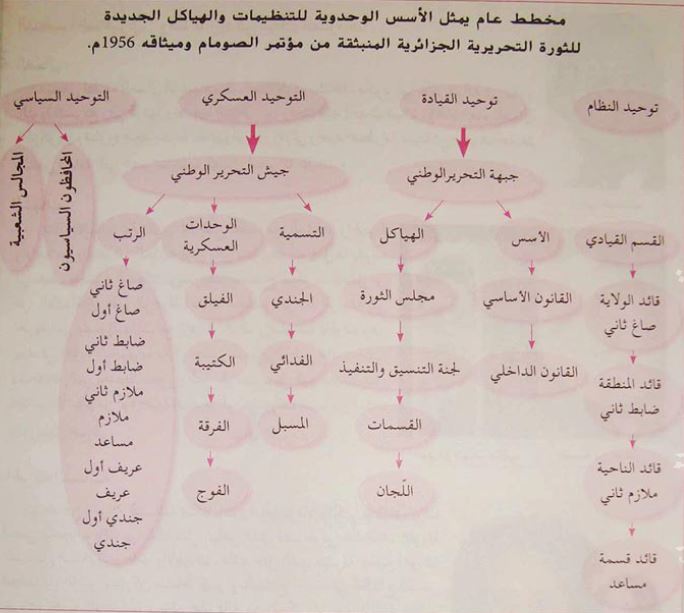 مخطط عام يمثل الأسس الوحدوية للتنظيمات والهياكل الجديدة
للثورة التحريرية الجزائرية المنبثقة من مؤتمر الصومام وميثاقه 1956م.
توحيد النظام
القسم القيادي
قائد الولاية
صاغ ثاني
قائد المنطقة
ضابط ثاني
قائد الناحية
ملازم ثاني
قائد قسمة
مساعد
توحيد القيادة
جبهة التحرير الوطني
الأسس
القانون الأساسي
القانون الداخلي
الهياكل
مجلس الثورة
لجنة التنسيق والتنفيذ
القسمات
اللّجان
التوحيد العسكري
جيش التحرير الوطني
التسمية
الجندي
الفدائي
المسبل
الوحدات
العسكرية
الفيلق
الكتيبة
الفرقة
الفوج
الرتب
صاغ ثاني
صاغ أول
ضابط ثاني
ضابط أول
ملازم ثاني
ملازم
مساعد
عريف أول
عريف
جندي أول
جندي
التوحيد السياسي
المحافظون السياسيون
المجالس الشعبية